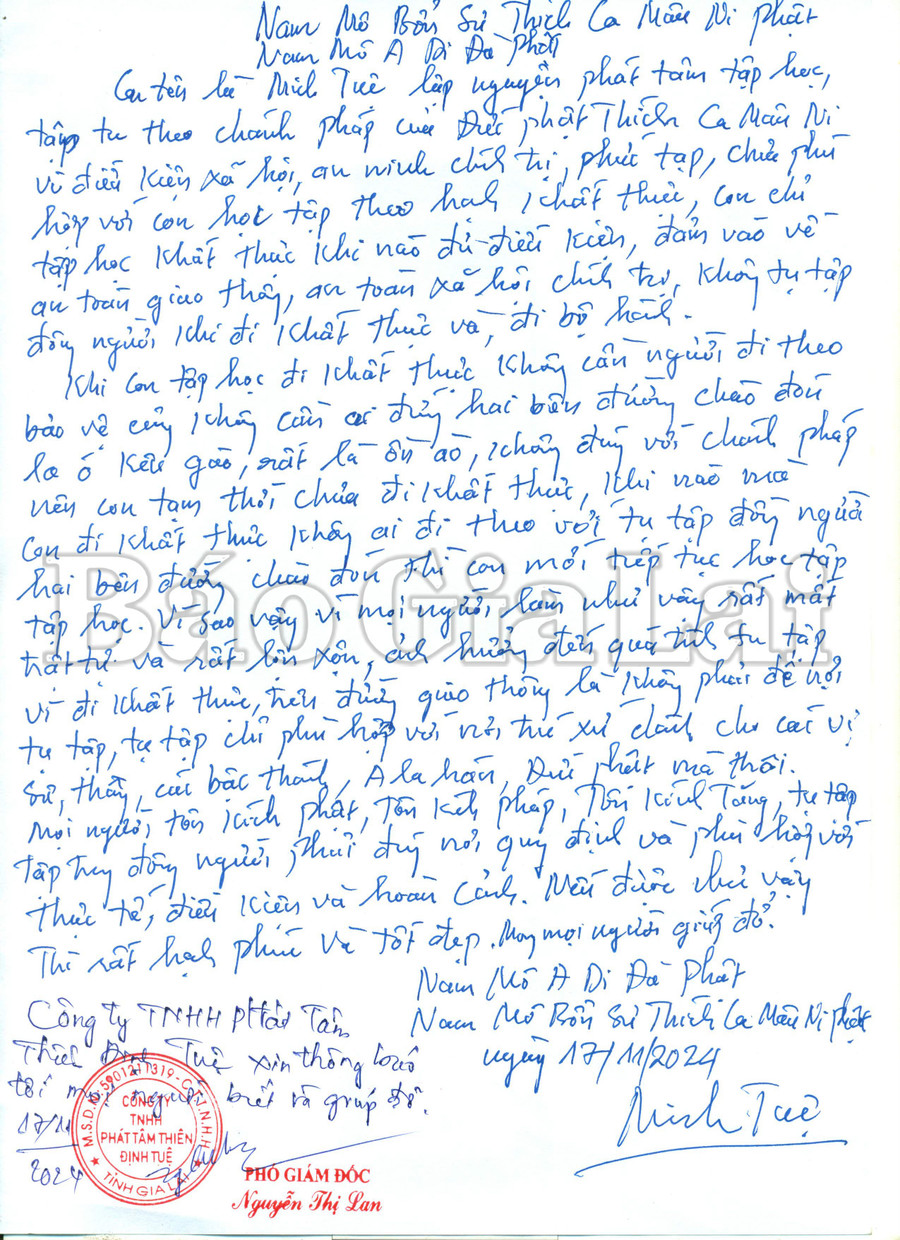 Nam Mô Bổn Sư Thích Ca Mâu Ni Phật
Nam Mô A Di Đà Phật
Con tên là Minh Tuệ lập nguyện phát tâm tập học,
tập tu theo chánh pháp của Đức phật Thích Ca Mâu Ni
vì điều kiện xã hội, an ninh chính trị, phức tạp, chưa phù
hợp với con học tập theo hạnh khất thực, con chỉ
tập học khất thực khi nào đủ điều kiện, đảm vảo về
an toàn giao thông, an toàn xã hội chính trị, không tụ tập
đông người khi đi khất thực và, đi bộ hành.
Khi con tập học đi khất thực không cần người đi theo
bảo vệ cũng không cần ai đứng hai bên đường chào đón
la ó kêu gào, rất là ồn ào, không đúng với chánh pháp
nên con tạm thời chưa đi khất thực, khi nào mà
con đi khất thực không ai đi theo với tụ tập đông người
hai bên đường chào đón thì con mới tiếp tục học tập
tập học. Vì sao vậy vì mọi người làm như vậy rất mất
trật tự và rất lộn xộn, ảnh hưởng đến quá trình tu tập
vì đi khất thực, trên đường giao thông là không phải để nơi
tụ tập, tụ tập chỉ phù hợp với nơi trú xứ dành cho các vị
sư, thầy, các bậc thánh, A la hán, Đức phật mà thôi.
Mọi người tôn kính phật, Tôn kính pháp, Tôn kính Tăng, tụ tập
tập trung đông người phải đúng nơi quy định và phù hợp với
thực tế, điều kiện và hoàn cảnh. Nếu được như vậy
Thì rất hạnh phúc và tốt đẹp. Mong mọi người giúp đỡ.
Nam Mô A Di Đà Phật
Nam Mô Bổn Sư Thích Ca Mâu Ni phật
ngày 17/11/2024
Minh Tuệ
Công ty TNHH Phát Tâm
Thiền Định Tuệ xin thông báo
tới mọi người biết và giúp đỡ.
17/11
2024
M.S.D.N: 5901211319 - C.T.T.N.H.H
CÔNG TY
TNHH
PHÁT TÂM THIỀN
ĐỊNH TUỆ
TỈNH GIA LAI
PHÓ GIÁM ĐỐC
Nguyễn Thị Lan
Báo Gia Lai